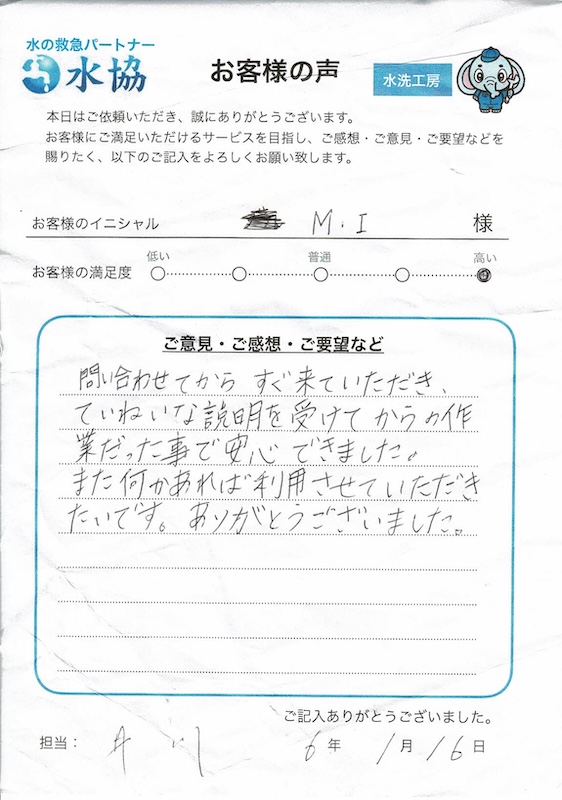 水の救急パートナー
水協
お客様の声
水洗工房
本日はご依頼いただき、誠にありがとうございます。
お客様にご満足いただけるサービスを目指し、ご感想・ご意見・ご要望などを
賜りたく、以下のご記入をよろしくお願い致します。
お客様のイニシャル M.I 様
低い 普通 高い
お客様の満足度
ご意見・ご感想・ご要望など
問い合わせてから すぐ来ていただき、
ていねいな説明を受けてからの作
業だった事で安心できました。
また何かあれば利用させていただき
たいです。ありがとうございました。
ご記入ありがとうございました。
担当: 井川 6年 1月16日